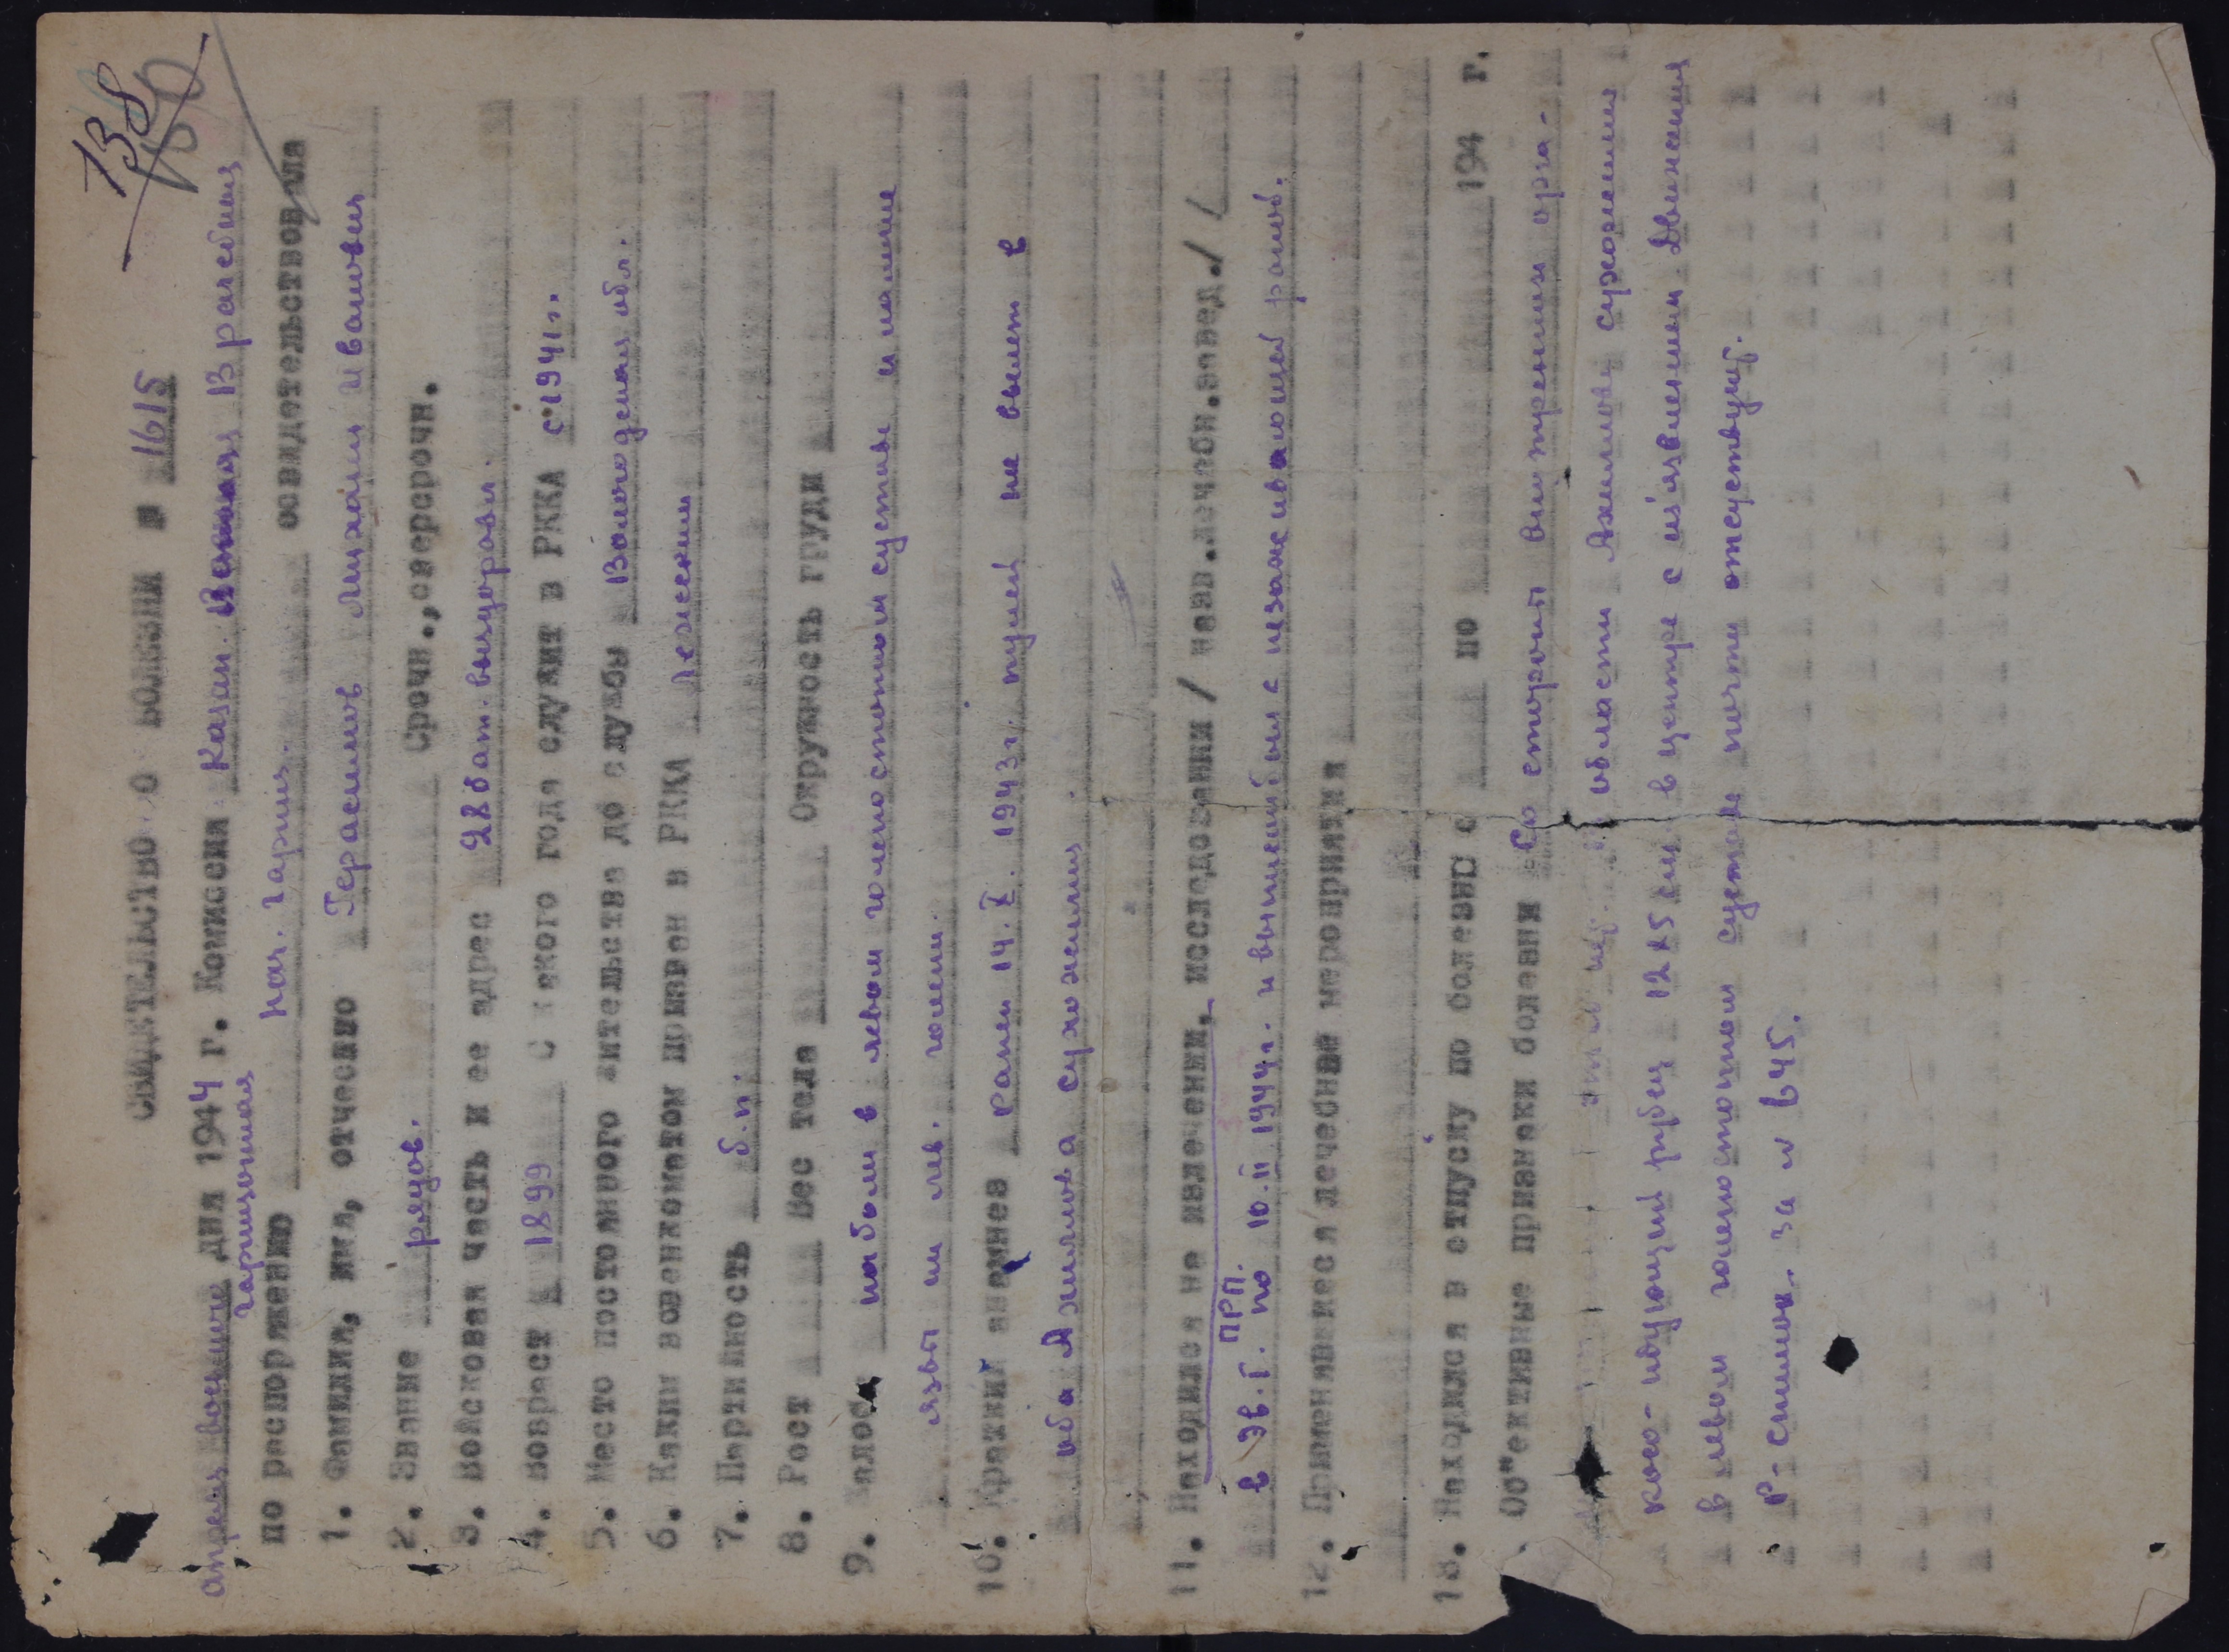 138
СВИДЕТЕЛЬСТВО О БОЛЕЗНИ № 1615
апреля восьмого дня 1944 г. Комиссия Казан. Военная Врачебная
гарнизонная
по распоряжению нач. гарниз. освидетельствовала
1. Фамилия, имя, отчество Герасимов Михаил Иванович
2. Звание рядов. Срочн., сверсрочн.
3. Войсковая часть и ее адрес 28 бат. выздоровл.
4. Возраст 1899 С какого года служит в РККА с 1941 г.
5. Место постоянного жительства до службы Вологодская обл.
6. Каким военкоматом призван в РККА Леженин
7. Партийность б.п.
8. Рост Вес тела Окружность груди
9. Жалобы на боли в левом голеностопном суставе и наличие
язвы на лев. голени.
10. Краткий анамнез ранен 14.X. 1943 г. пулей не вылет в
оба Ахиллова сухожилия.
11. Находился на излечении, исследовании / назв. лечебн. завед./
в ЭГ. ПРП. по 10.II 1944 г. и выписан был с незаживающей раной.
12. Применявшиеся лечебные мероприятия
13. Находился в отпуску по болезни с по 194 г.
Об"ективные признаки болезни Со стороны внутренних орга-
области Ахиллова сухожилия
косо-идущий рубец 12х5 см в центре с из'язвлением Движения
в левом голеностопном суставе почти отсуствуют.
Р-снимок за № 645.